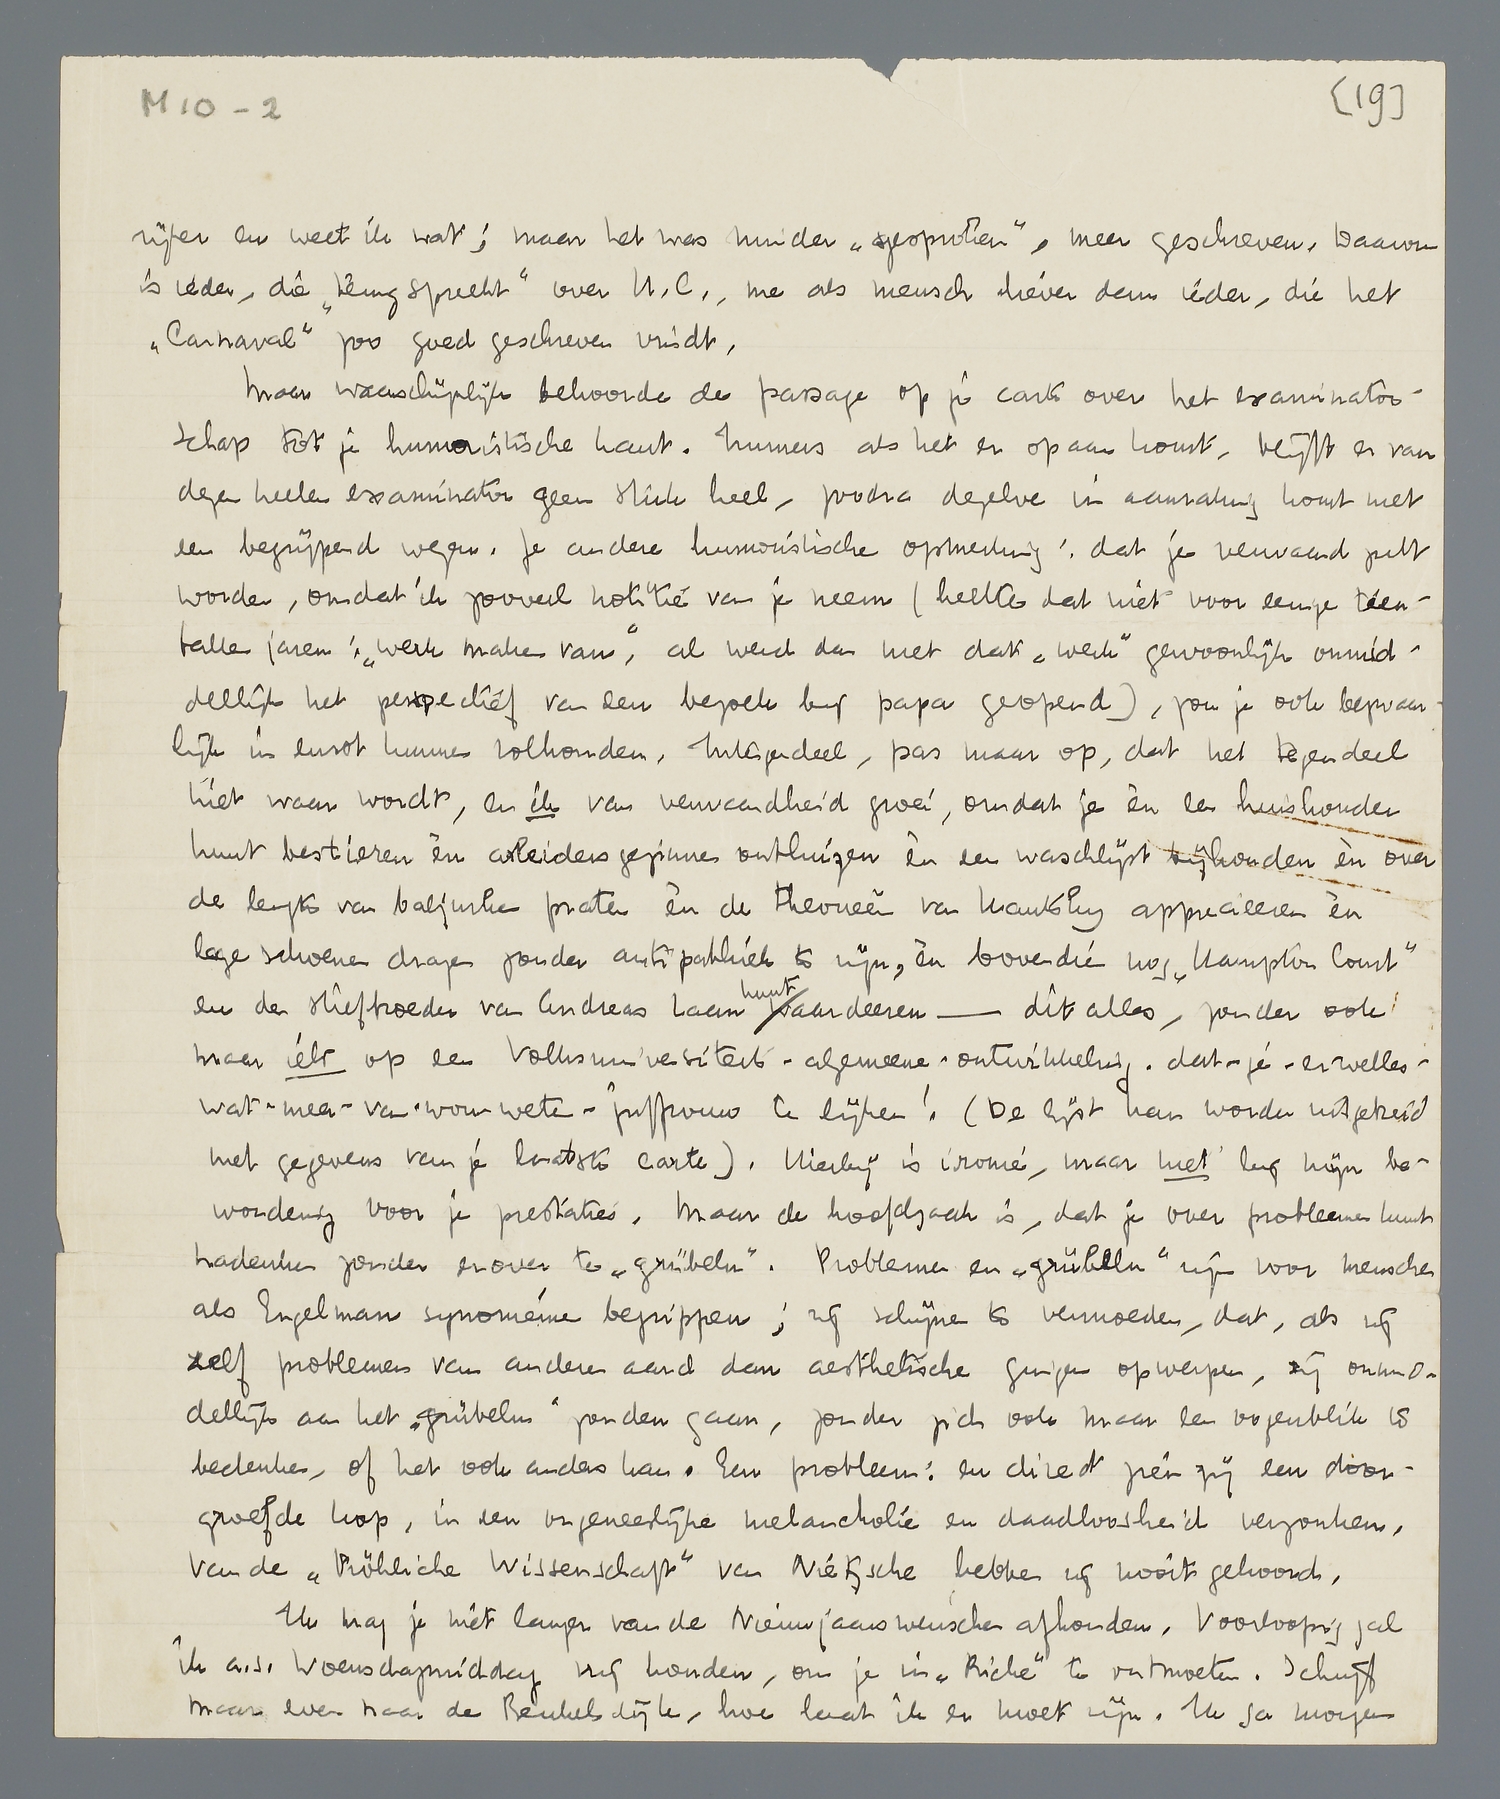 M 10 - 2
[19]
rijker en weet ik wat; maar het was minder „gesproken“, meer geschreven. Daarom
is ieder, die „terugspreekt“ over H.C., me als mensch liever dan ieder, die het
„Carnaval“ zoo goed geschreven vindt.
Maar waarschijnlijk behoorde de passage op je carte over het examinator-
schap tot je humoristische kant. Immers als het er op aan komt, blijft er van
dezen heelen examinator geen stuk heel, zoodra dezelve in aanraking komt met
een begrijpend wezen. Je andere humoristische opmerking: dat je verwaand zult
worden, omdat ik zooveel notitie van je neem (heette dat niet voor eenige tien-
tallen jaren: „werk maken van“, al werd dan met dat „werk“ gewoonlijk onmid-
dellijk het perspectief van een bezoek bij papa geopend), zou je ook bezwaar-
lijk in ernst kunnen volhouden. Integendeel, pas maar op, dat het tegendeel
niet waar wordt, en ik van verwaandheid groei, omdat je èn een huishouden
kunt bestieren èn arbeidersgezinnen onthuizen èn een waschlijst bijhouden èn over
de lengte van baljurken praten èn de theorieën van Kautsky apprecieeren èn
lage schoenen dragen zonder antipathiek te zijn, èn bovendien nog „Hampton Court“
en de stiefmoeder van Andreas Laan kunt waardeeren — dit alles, zonder ook
maar iets op een Volksuniversiteits-algemeene-ontwikkeling-dat-je-er-welles-
wat-meer-van-wou-weten-juffrouw te lijken! (De lijst kan worden uitgebreid
met gegevens van je laatste carte). Hierbij is ironie, maar niet bij mijn be-
wondering voor je prestaties. Maar de hoofdzaak is, dat je over problemen kunt
nadenken zonder erover te „grübeln“. Problemen en „grübeln“ zijn voor menschen
als Engelman synonieme begrippen; zij schijnen te vermoeden, dat, als zij
zelf problemen van anderen aard dan aesthetische gingen opwerpen, zij onmid-
dellijk aan het „grübeln“ zouden gaan, zonder zich ook maar een oogenblik te
bedenken, of het ook anders kan. Een probleem: en direct zien zij een door-
groefde kop, in een ongeneeslijke melancholie en daadloosheid verzonken.
Van de „Fröhliche Wissenschaft“ van Nietzsche hebben zij nooit gehoord.
Ik mag je niet langer van de Nieuwjaarswenschen afhouden. Voorloopig zal
ik a.s. Woensdagmiddag vrij houden, om je in „Riche“ te ontmoeten. Schrijf
maar even naar de Beukelsdijk, hoe laat ik er moet zijn. Ik ga morgen